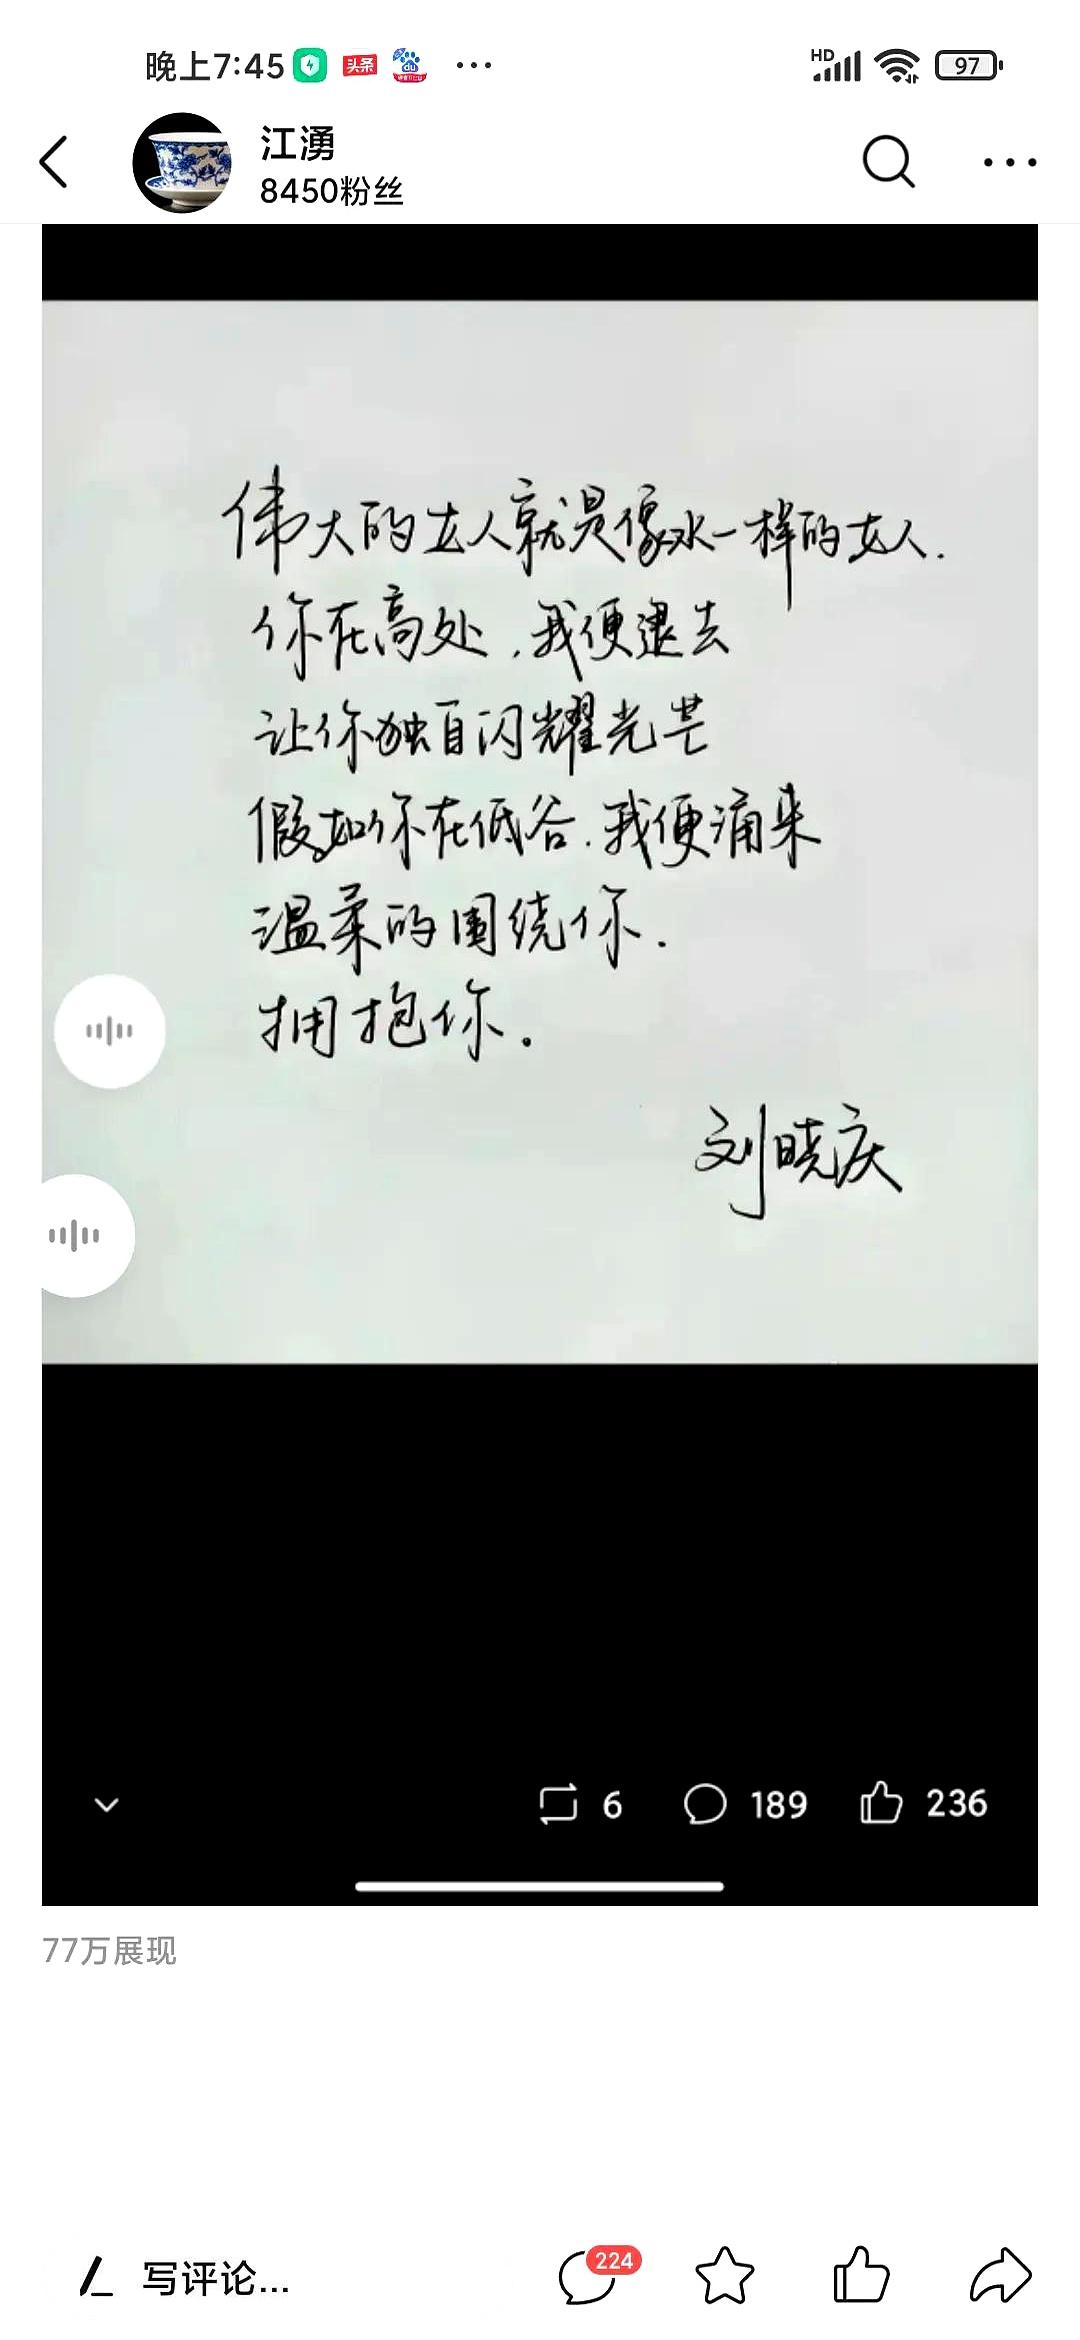 晚上7:45 头条 du ... HD 97
江湧
8450粉丝
伟大的女人就是像水一样的女人.
你在高处,我便退去
让你独自闪耀光芒
假如你在低谷.我便涌来
温柔的围绕你.
拥抱你.
刘晓庆
6 189 236
77万展现
写评论... 224